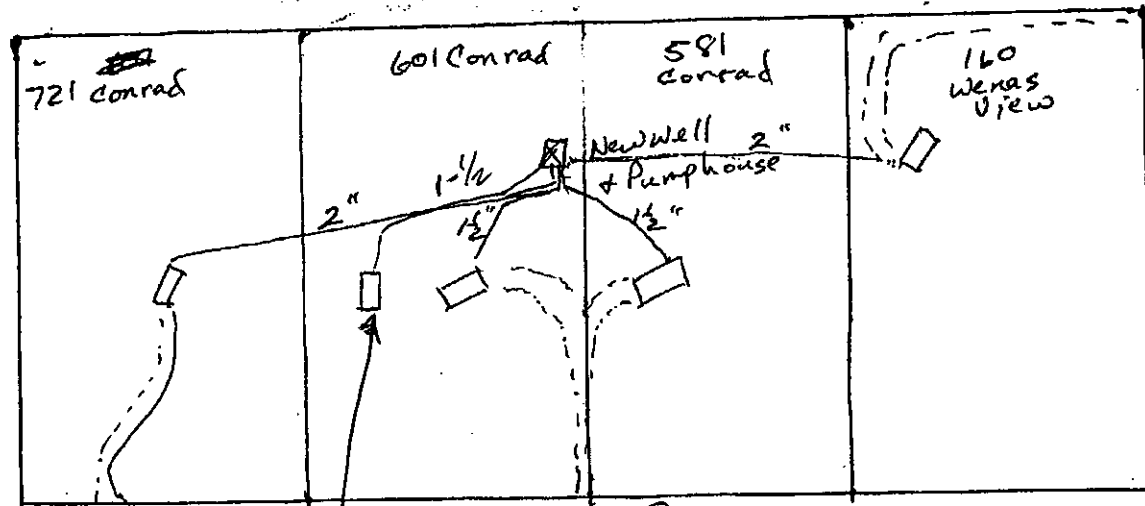 721 Conrad
601 Conrad
581
Conrad
160
Wenas
View
New Well
& Pumphouse
2"
1-1/2
2"
1½"
1½"